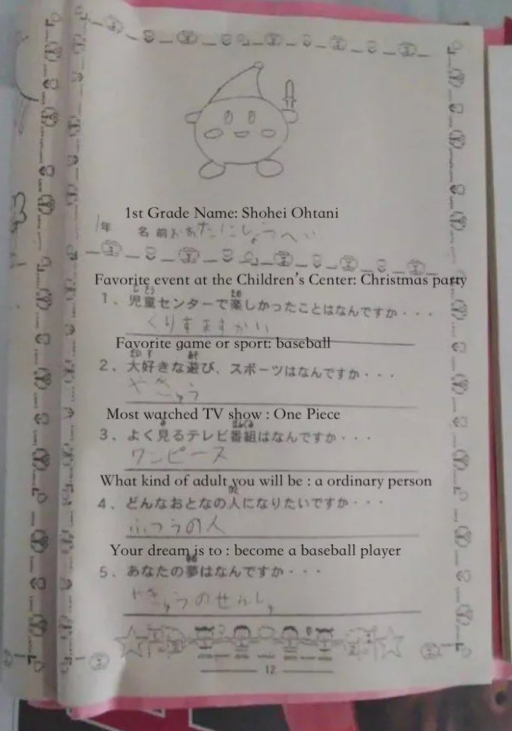 1st Grade Name: Shohei Ohtani
1年 名前 おおたにしょうへい
Favorite event at the Children's Center: Christmas party
1、児童センターで楽しかったことはなんですか・・・
くりすますかい
Favorite game or sport: baseball
2、大好きな遊び、スポーツはなんですか・・・
やきゅう
Most watched TV show : One Piece
3、よく見るテレビ番組はなんですか・・・
ワンピース
What kind of adult you will be : a ordinary person
4、どんなおとなの人になりたいですか・・・
ふつうの人
Your dream is to : become a baseball player
5、あなたの夢はなんですか・・・
やきゅうのせんしゅ
12